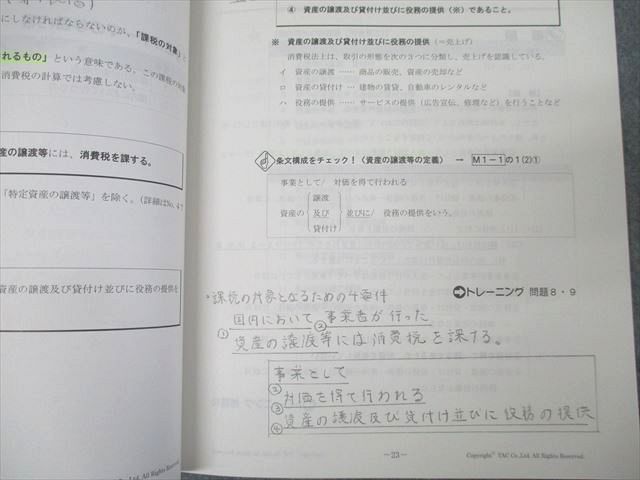 にしなければならないのか、「課税の対象」と
れるもの」という意味である。この課税の対象
消費税の計算では考慮しない。
産の譲渡等には、消費税を課する。
「特定資産の譲渡等」を除く。(詳細はNo.4で
資産の譲渡及び貸付け並びに役務の提供を
All Rights Reserved.
④ 資産の譲渡及び貸付け並びに役務の提供(※)であること。
※ 資産の譲渡及び貸付け並びに役務の提供(=売上げ)
消費税法上は、取引の形態を次の3つに分類し、売上げを認識している。
イ 資産の譲渡 …… 商品の販売、資産の売却など
ロ 資産の貸付け … 建物の賃貸、自動車のレンタルなど
ハ 役務の提供 …… サービスの提供(広告宣伝、修理など)を行うことなど
条文構成をチェック!(資産の譲渡等の定義) → M1-1の1(2)①
事業として/ 対価を得て行われる
資産の
譲渡
及び
貸付け
並びに/ 役務の提供をいう。
トレーニング 問題8・9
・課税の対象となるための4要件
国内において 事業者が行った
① ②
資産の譲渡等には消費税を課する。
事業として
②
対価を得て行われる
③
資産の譲渡及び貸付け並びに役務の提供
④
-23-
Copyright© TAC Co.,Ltd. All Rights Reserved.